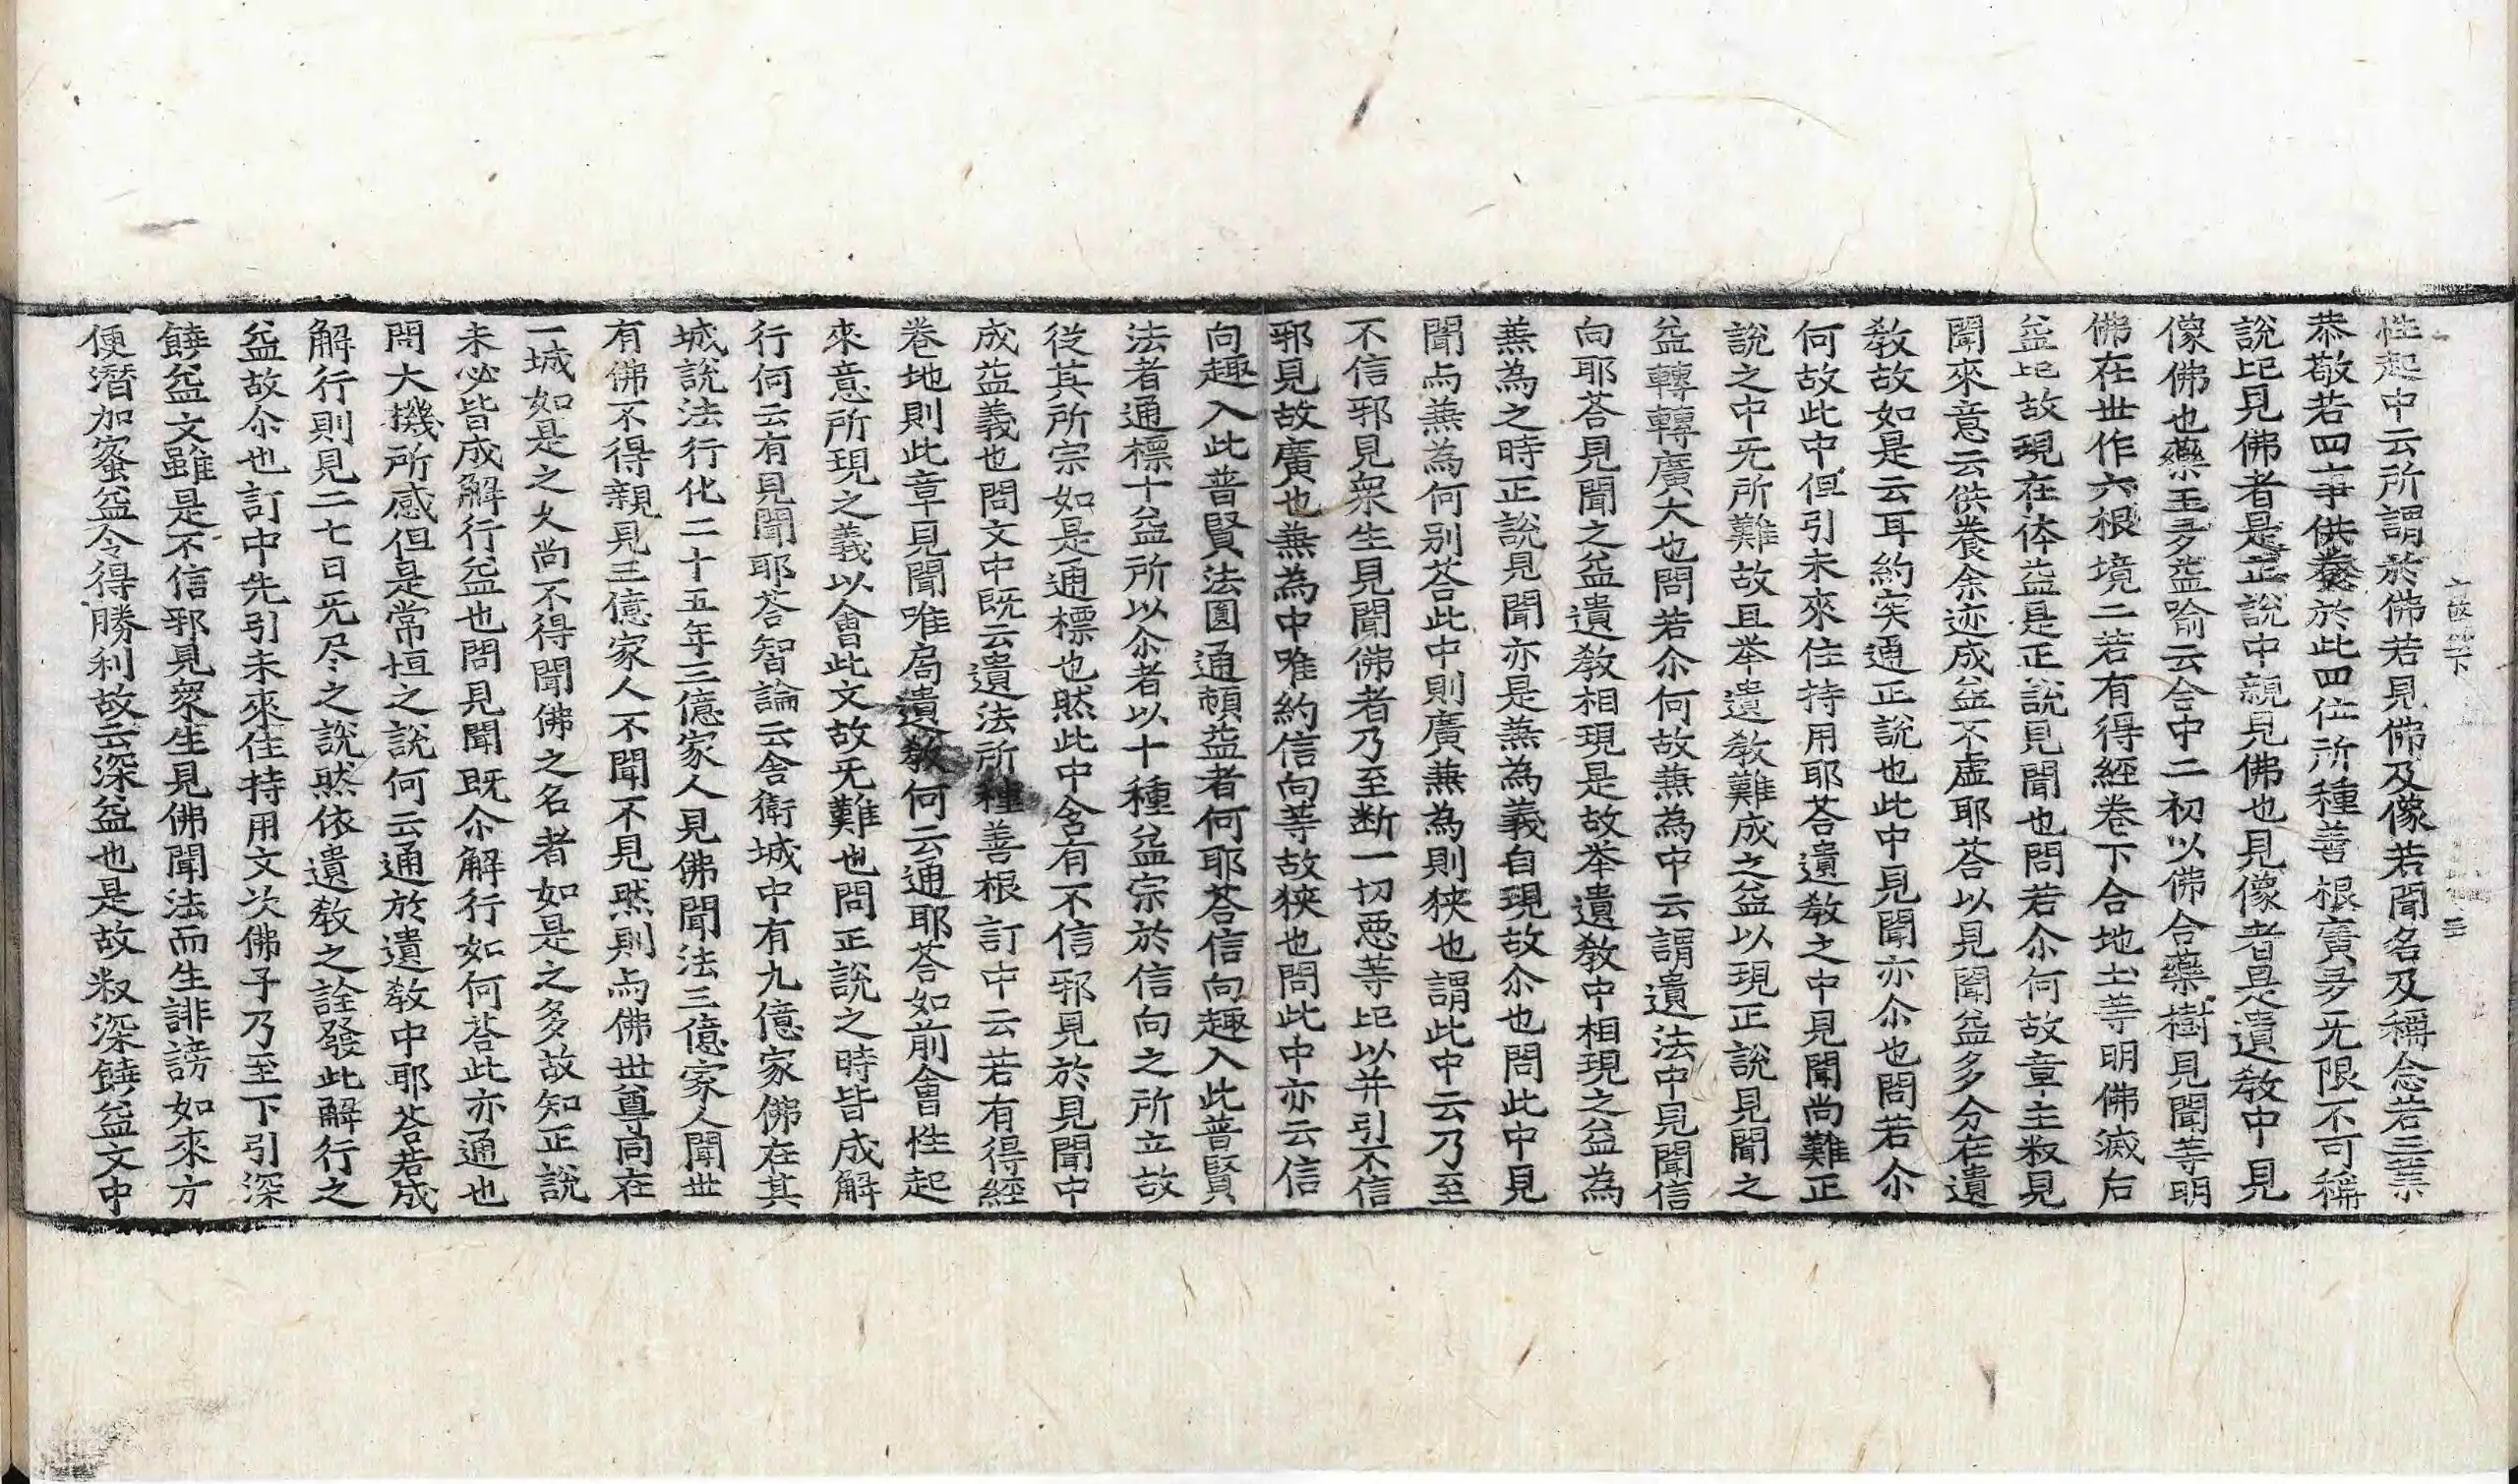 性起中云所謂於佛若見佛及像若聞名及稱念若三業
恭敬若四事供養於此四位所種善根實多无限不可稱
說记見佛者是正說中親見佛也見像者是遺教中見
像佛也藥王多益喻云合中二初以佛合藥樹見聞等明
佛在世作六根境二若有得經卷下合地土等明佛滅后
益记故現在体益是正說見聞也問若尒何故章主叙見
聞來意云供養余迹成益不虛耶荅以見聞益多分在遺
教故如是云耳約实通正說也此中見聞亦尒也問若尒
何故此中但引未來住持用耶荅遺教之中見聞尚難正
說之中无所難故且举遺教難成之益以現正說見聞之
益轉轉廣大也問若尒何故兼為中云謂遺法中見聞信
向耶荅見聞之益遺教相現是故举遺教中相現之益為
兼為之時正說見聞亦是兼為義自現故尒也問此中見
聞与兼為何别荅此中則廣兼為則狹也謂此中云乃至
不信邪見衆生見聞佛者乃至断一切惡等记以并引不信
邪見故廣也兼為中唯約信向等故狹也問此中亦云信
向趣入此普賢法圓通頓益者何耶荅信向趣入此普賢
法者通標十益所以尒者以十種益宗於信向之所立故
從其所宗如是通標也然此中含有不信邪見於見聞中
成益義也問文中既云遺法所種善根訂中云若有得經
卷地則此章見聞唯局遺教何云通耶荅如前會性起
來意所現之義以會此文故无難也問正說之時皆成解
行何云有見聞耶荅智論云舍衛城中有九億家佛在其
城說法行化二十五年三億家人見佛聞法三億家人聞世
有佛不得親見三億家人不聞不見然則与佛世尊同在
一城如是之久尚不得聞佛之名者如是之多故知正說
未必皆成解行益也問見聞既尒解行如何荅此亦通也
問大機所感但是常恒之說何云通於遺教中耶荅若成
解行則見二七日无尽之說然依遺教之詮發此解行之
益故尒也訂中先引未來住持用文次佛子乃至下引深
饒益文雖是不信邪見衆生見佛聞法而生誹謗如來方
便潛加蜜益令得勝利故云深益也是故叙深饒益文中